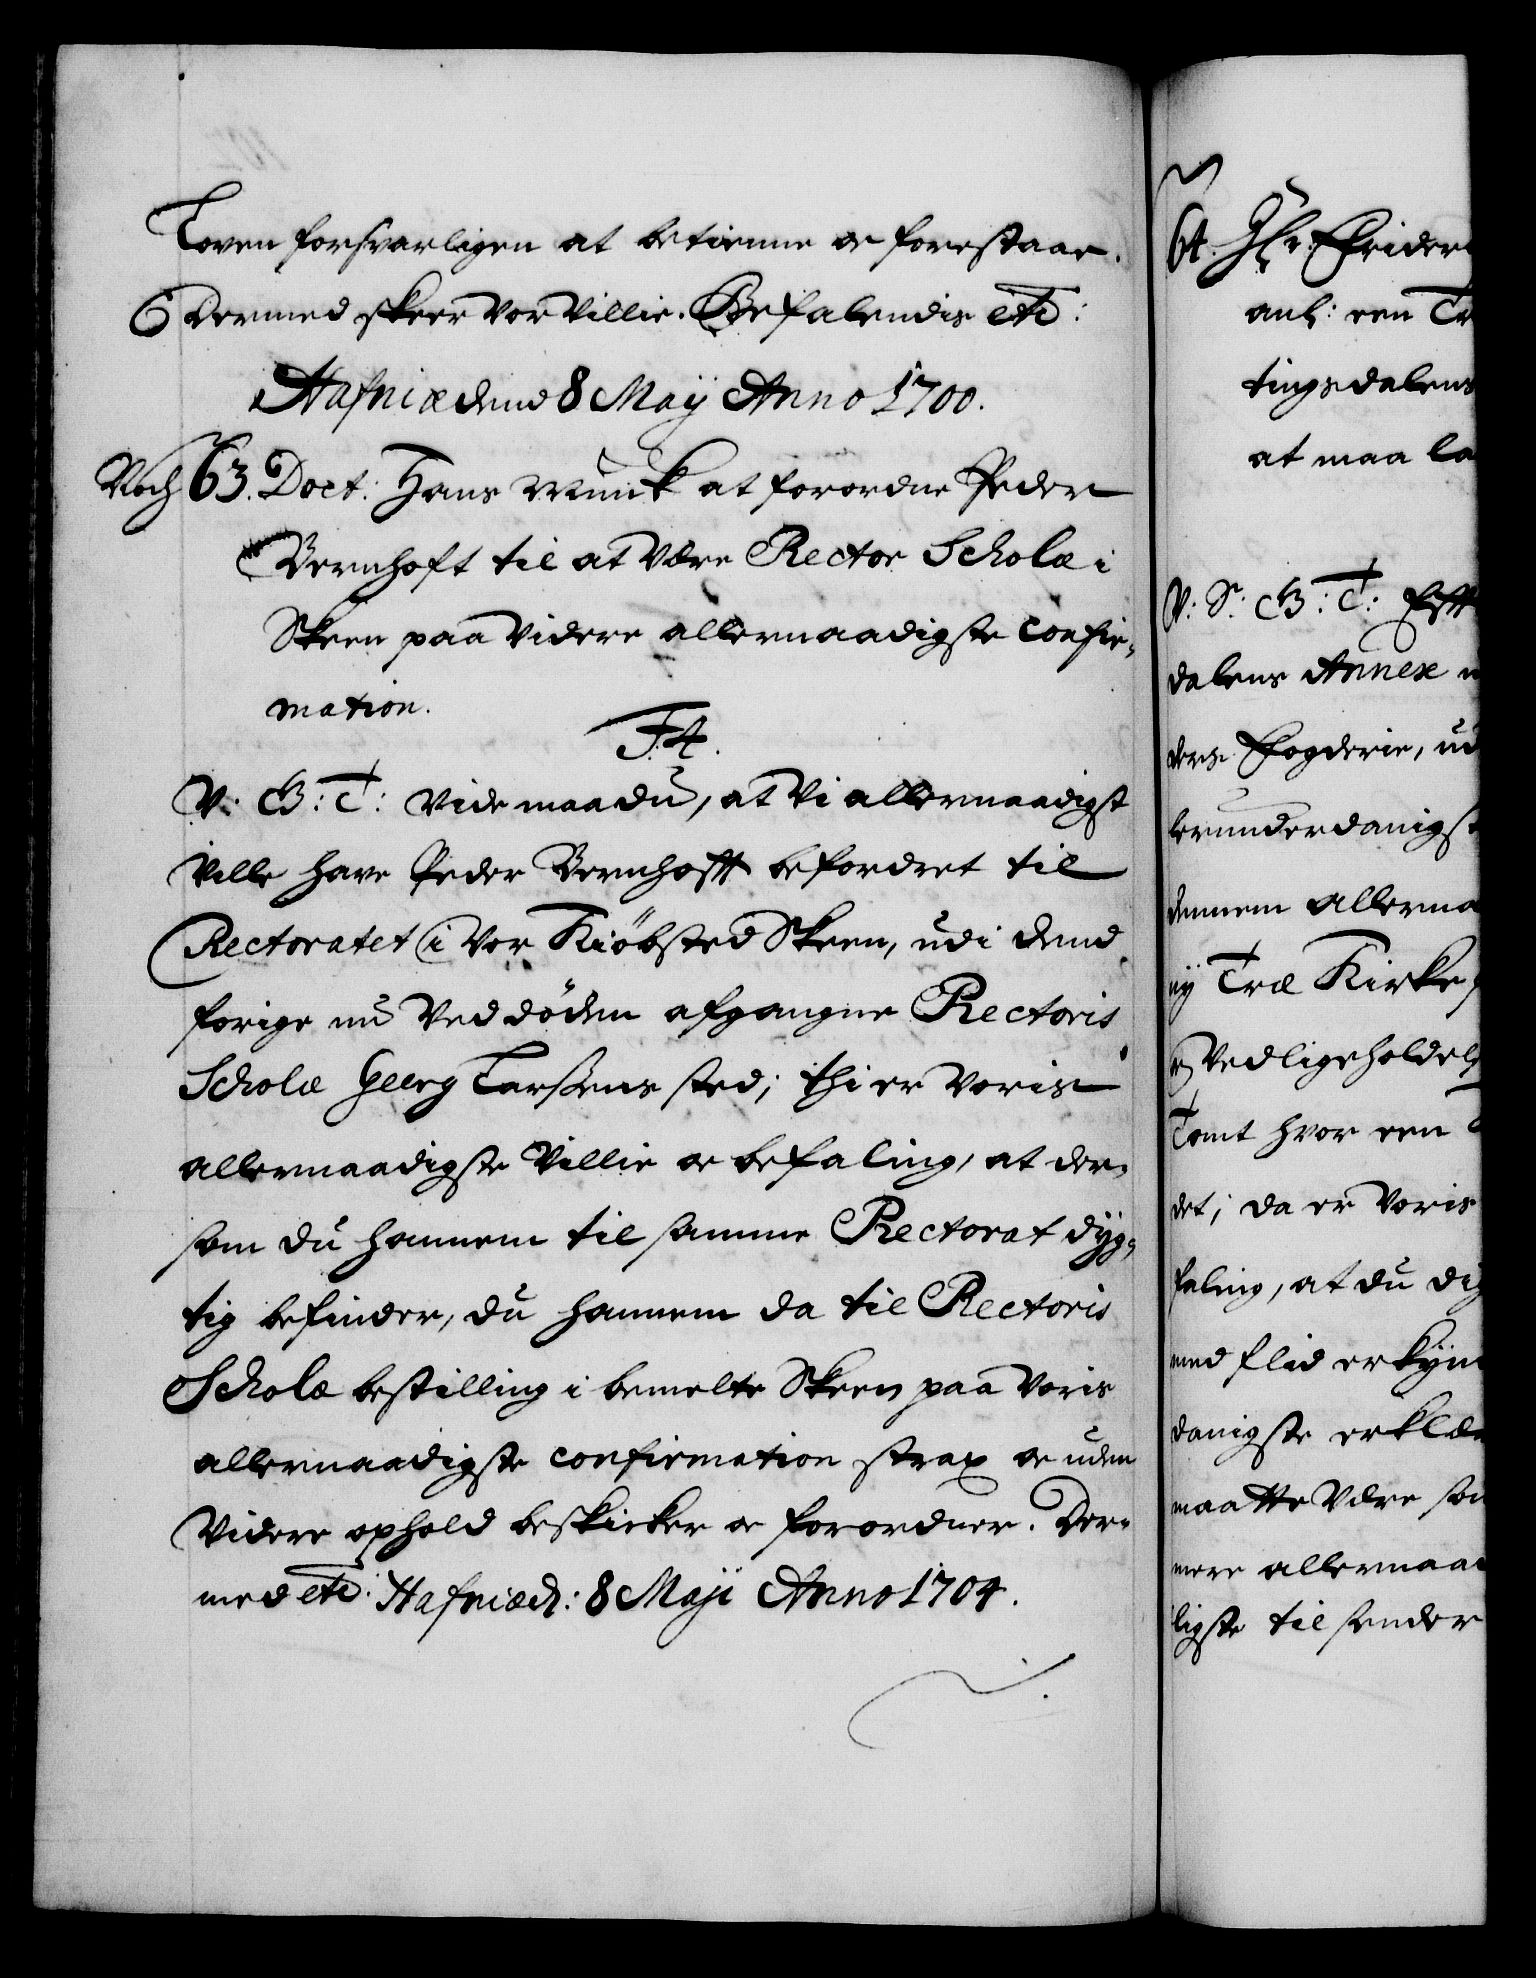 Loven forsvarligen at betienne oc forestaae.
Dermed skeer Vor Villie. Befalendis etc:
Hafniæ dend 8 Maÿ Anno 1700.
Noch 63. Doct: Hans Munck at forordne Peder
Bernhoft til at være Rector Scholæ i
Skeen paa videre allernaadigste confir-
mation.
F.4.
V. G: T: Vide maa du, at Vi allernaadigst
Ville have Peder Bernhofft befordret til
Rectoratet i Vor Kiöbsted Skeen, udi dend
forige nu Ved döden afgangne Rectoris
Scholæ Georg Larsens sted; thi er Voris
allernaadigste Villie oc befaling, at der-
som du hannem til samme Rectorat dÿg-
tig befinder, du hannem da til Rectoris
Scholæ bestilling i bemelte Skeen paa Voris
allernaadigste confirmation strax oc uden
Videre ophold beskicker oc forordner. Der-
med etc: Hafniæ d: 8 Maji Anno 1704.
64. Hr. Frider
anl: een Tr
tingsdalens
at maa la
V: S: G: T: Efft
dalens Annex
ders Fogderie, ud
lerunderdanigst
dennem allerna
nÿ Træ Kirke
Vedligeholdels
Tomt hvor een
det; da er Voris
faling, at du dig
med flid erkÿn
danigste erklæ
maatte Være so
mere allernaa
ligste tilsender